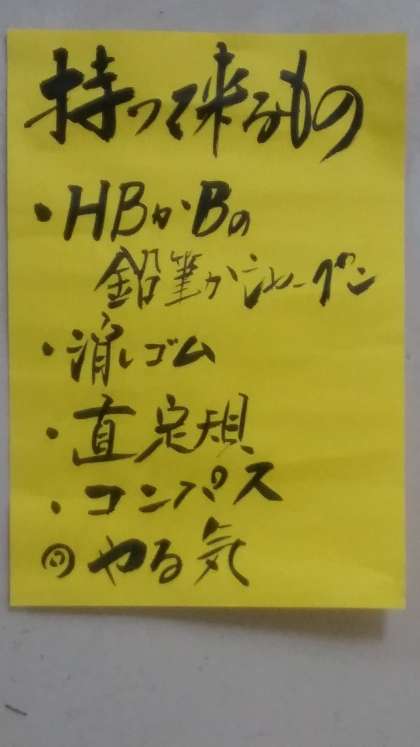 持って来るもの
・HBかBの
鉛筆かシャーペン
・消しゴム
・直定規
・コンパス
◎やる気